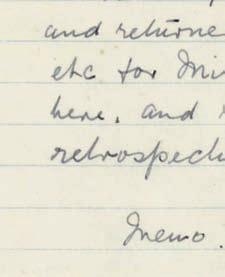 and returne
etc for Min
here. and
retrospecti
Memo.